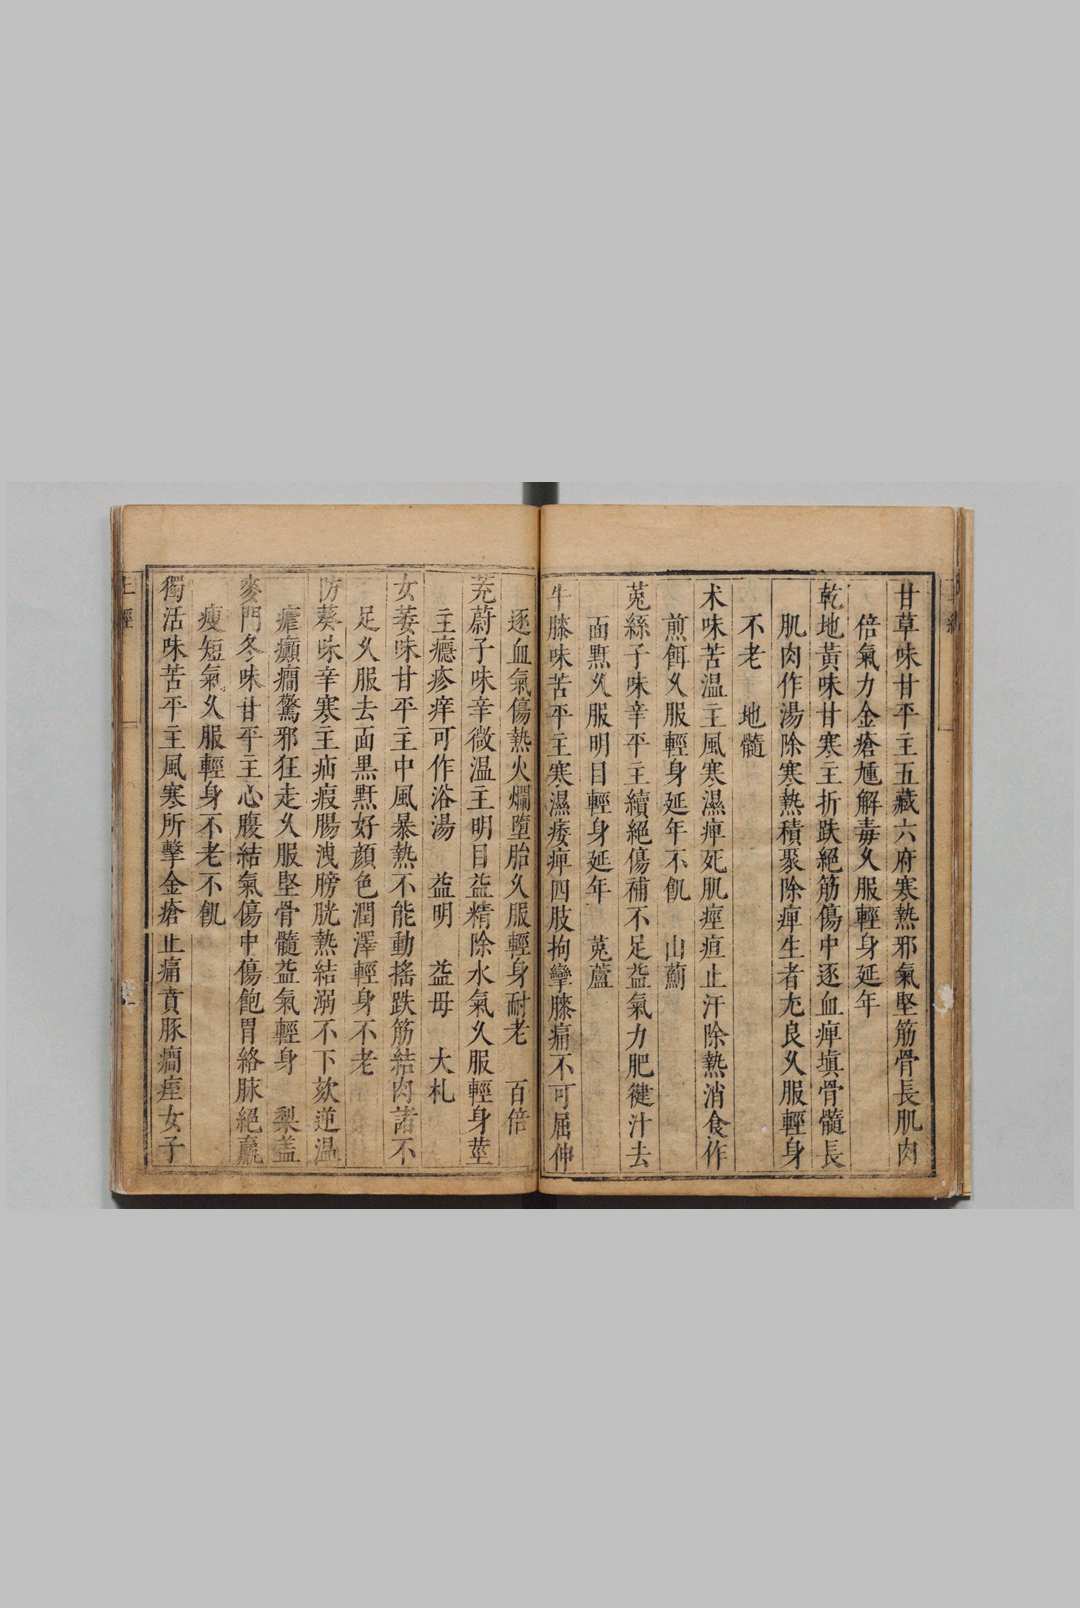 甘草味甘平主五藏六府寒熱邪氣堅筋骨長肌肉
倍氣力金瘡尰解毒久服輕身延年
乾地黃味甘寒主折跌絕筋傷中逐血痺塡骨髓長
肌肉作湯除寒熱積聚除痺生者尤良久服輕身
不老　地髓
术味苦溫主風寒濕痺死肌痙疸止汗除熱消食作
煎餌久服輕身延年不飢　山薊
菟絲子味辛平主續絕傷補不足益氣力肥健汁去
面䵟久服明目輕身延年　菟蘆
牛膝味苦平主寒濕痿痺四肢拘攣膝痛不可屈伸
逐血氣傷熱火爛墮胎久服輕身耐老　百倍
茺蔚子味辛微溫主明目益精除水氣久服輕身莖
主癮疹痒可作浴湯　益明　益母　大札
女萎味甘平主中風暴熱不能動搖跌筋結肉諸不
足久服去面黒䵟好顔色潤澤輕身不老
防葵味辛寒主疝瘕腸洩膀胱熱結溺不下欬逆溫
瘧癲癇驚邪狂走久服堅骨髓益氣輕身　梨盖
麥門冬味甘平主心腹結氣傷中傷飽胃絡脉絕羸
瘦短氣久服輕身不老不飢
獨活味苦平主風寒所擊金瘡止痛賁豚癇痓女子
上經